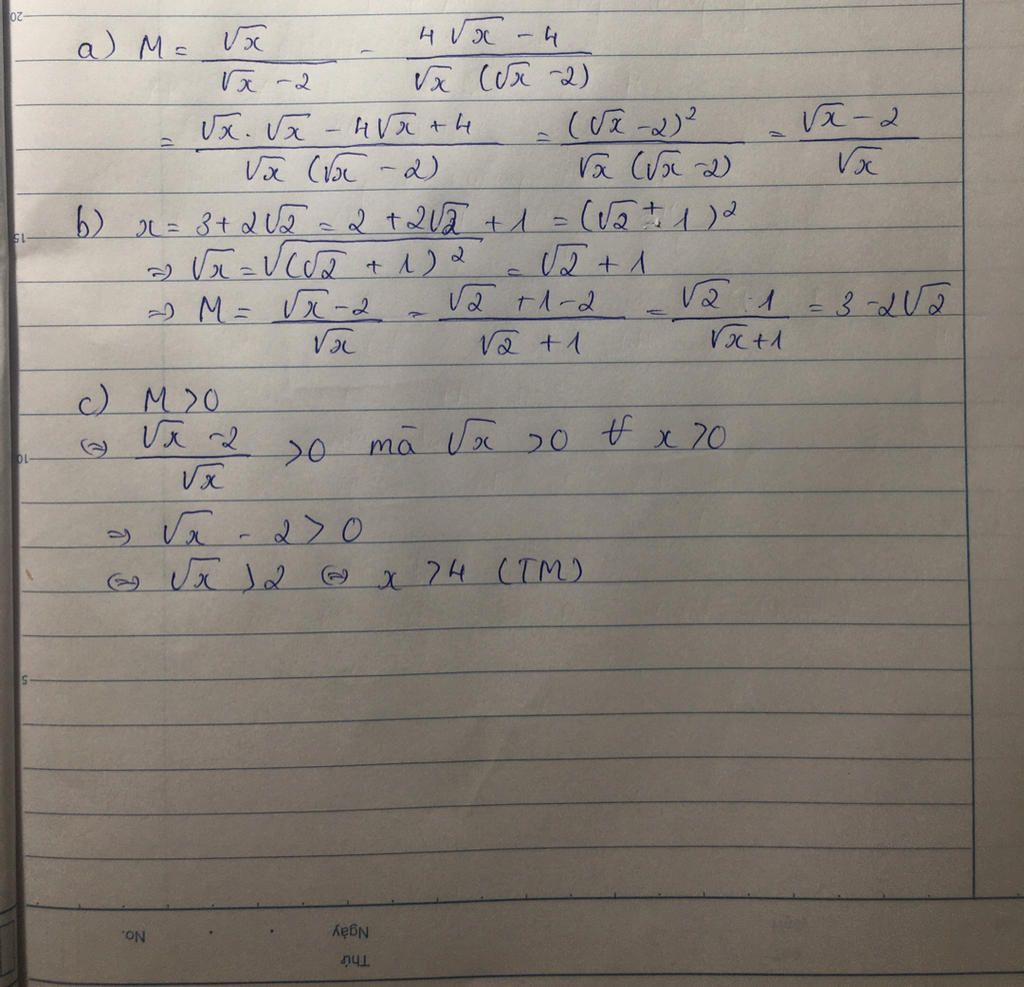 a) M = √x / (√x - 2) - (4√x - 4) / (√x (√x - 2))
= (√x . √x - 4√x + 4) / (√x (√x - 2)) = (√x - 2)² / (√x (√x - 2)) = (√x - 2) / √x
b) x = 3 + 2√2 = 2 + 2√2 + 1 = (√2 + 1)²
⇒ √x = √((√2 + 1)²) = √2 + 1
⇒ M = (√x - 2) / √x = (√2 + 1 - 2) / (√2 + 1) = (√2 - 1) / (√x + 1) = 3 - 2√2
c) M > 0
⇔ (√x - 2) / √x > 0 mà √x > 0 ∀ x > 0
⇒ √x - 2 > 0
⇔ √x > 2 ⇔ x > 4 (TM)
20
15
10
5
No.
Ngày
Thứ